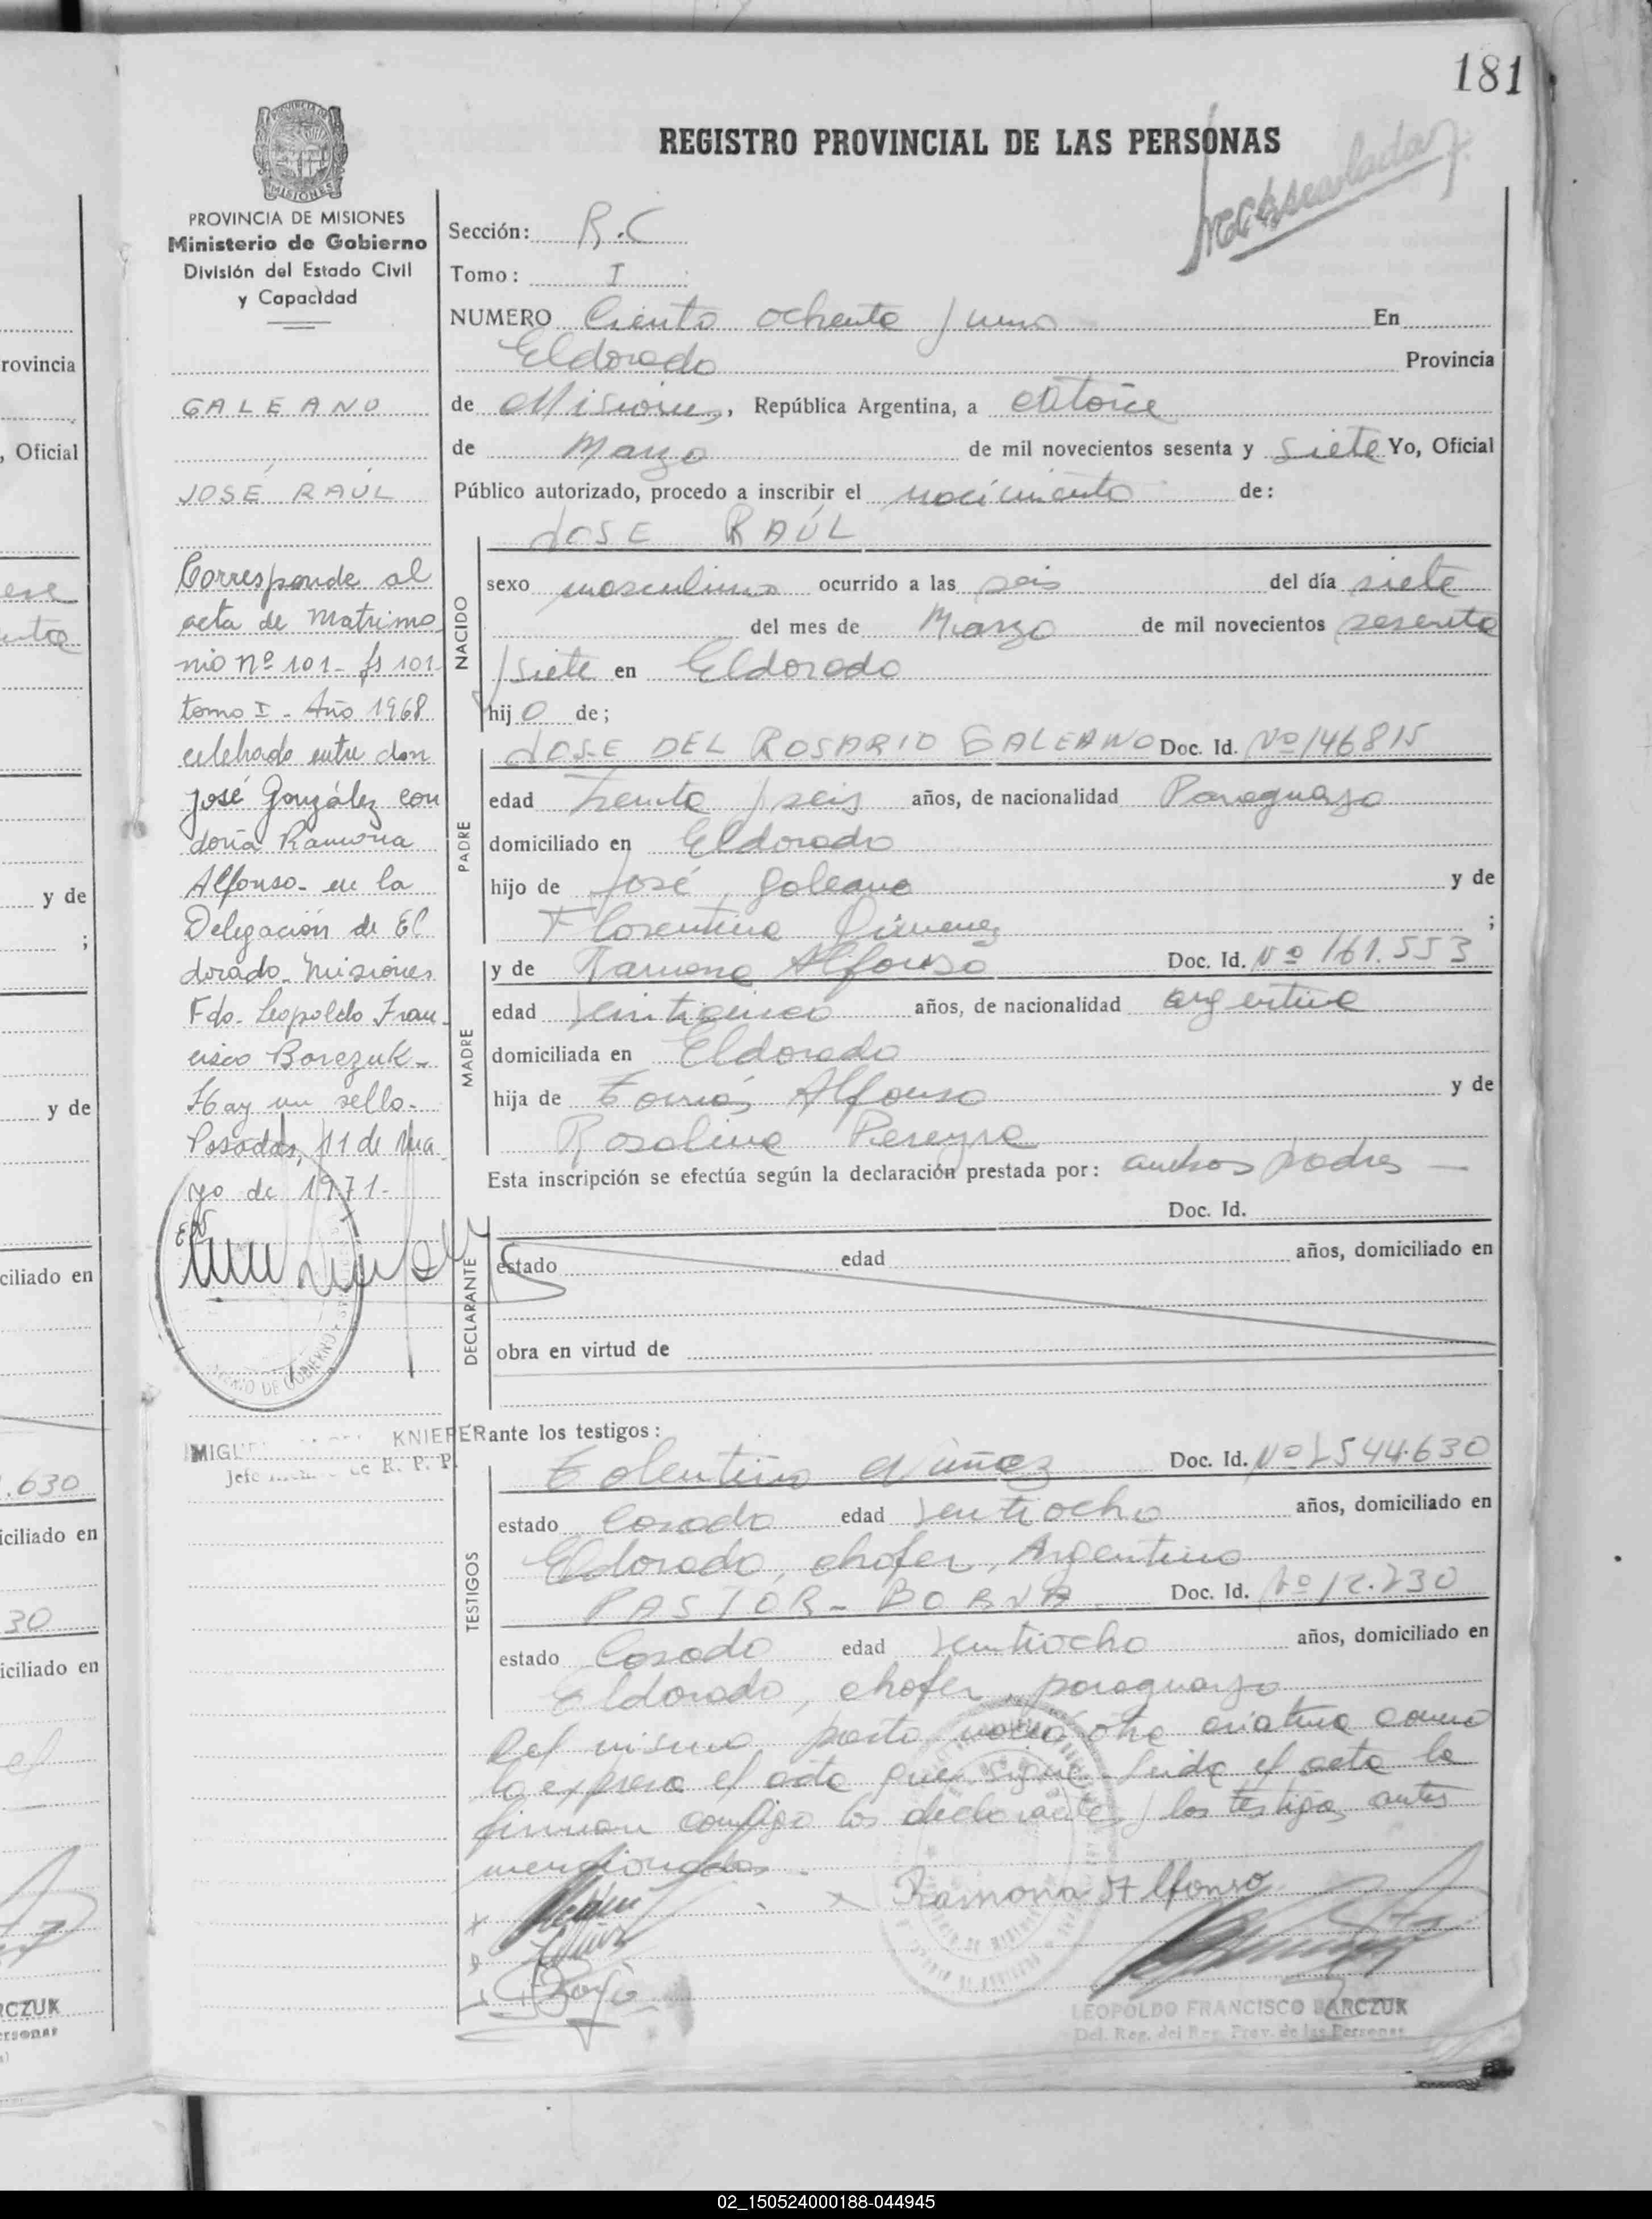 181
REGISTRO PROVINCIAL DE LAS PERSONAS
PROVINCIA DE MISIONES
Ministerio de Gobierno
División del Estado Civil
y Capacidad
GALEANO
JOSÉ RAÚL
Corresponde al
acta de Matrimo
nio nº 101 - fs 101
tomo I - Año 1968
celebrado entre don
José González con
doña Ramona
Alfonso - en la
Delegación de El
dorado - Misiones
Fdo. Leopoldo Fran
cisco Barczuk -
Hay un sello -
Posadas, 11 de Ma
yo de 1971 -
KNIEFER
Sección: R.C
Tomo: I
NUMERO Ciento ochenta y uno En
Eldorado Provincia
de Misiones, República Argentina, a catorce
de Marzo de mil novecientos sesenta y siete Yo, Oficial
Público autorizado, procedo a inscribir el nacimiento de:
JOSE RAÚL
NACIDO
sexo masculino ocurrido a las seis del día siete
del mes de Marzo de mil novecientos sesenta
y siete en Eldorado
hijo de;
PADRE
JOSE DEL ROSARIO GALEANO Doc. Id. Nº 146815
edad treinta y seis años, de nacionalidad Paraguayo
domiciliado en Eldorado
hijo de José Galeano y de
Florentina Jimenez ;
MADRE
y de Ramona Alfonso Doc. Id. Nº 161.553
edad veinticinco años, de nacionalidad argentina
domiciliada en Eldorado
hija de Tomás Alfonso y de
Rosalina Pereyra
Esta inscripción se efectúa según la declaración prestada por: ambos padres —
DECLARANTE
Doc. Id.
estado edad años, domiciliado en
obra en virtud de
ante los testigos:
TESTIGOS
Tolentino Núñez Doc. Id. Nº 7544.630
estado Casado edad veintiocho años, domiciliado en
Eldorado, chofer, Argentino
PASTOR - BORJA Doc. Id. Nº 12.730
estado Casado edad veintiocho años, domiciliado en
Eldorado, chofer, paraguayo
Del mismo parto nació otra criatura como
lo expresa el acta que sigue. Leida el acta la
firman conmigo los declarantes y los testigos antes
mencionados.
Ramona Alfonso
LEOPOLDO FRANCISCO BARCZUK
Del. Reg. del Reg. Prov. de las Personas
rovincia
, Oficial
y de
;
y de
ciliado en
.630
iciliado en
30
iciliado en
RCZUK
02_150524000188-044945